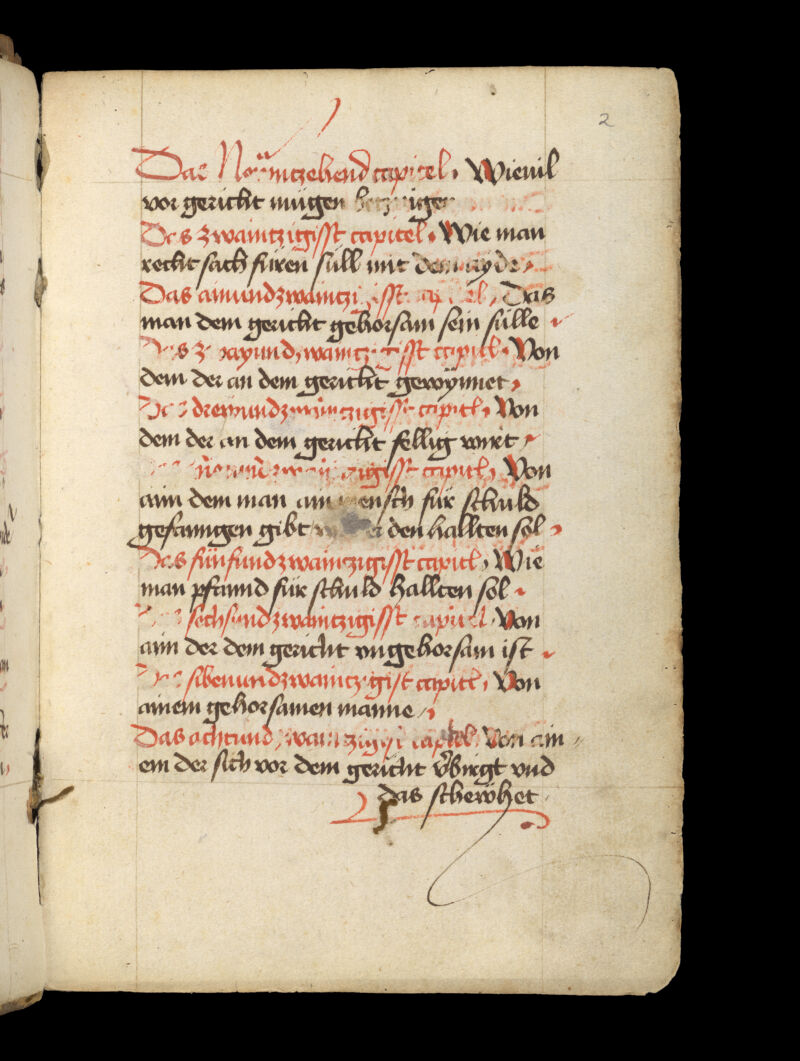 2
Das capitel Wieuil
vor gericht mügen
Das zwaintzigisst capitel Wie man
recht sach füren süll mit dem ayde
Das ainundzwaintzigisst capitel Das
man dem gericht gehorsam sein sülle
Das zwayundzwaintzigisst capitel Von
dem der an dem gericht gewynnet
Das drewundzwaintzigisst capitel Von
dem der an dem gericht fellig wirt
capitel Von
aim dem man ain mensch für schuld
gefanngen gibt den hallten sol
Das fünfundzwaintzigisst capitel Wie
man pfannd für schuld hallten sol
Das sechsundzwaintzigisst capitel Von
aim der dem gericht vngehorsam ist
Das sibenundzwaintzigist capitel Von
ainem gehorsamen manne
Das achtundzwaintzigist capitel Von ain
em der sich vor dem gericht v̄birgt vnd
das schewhet